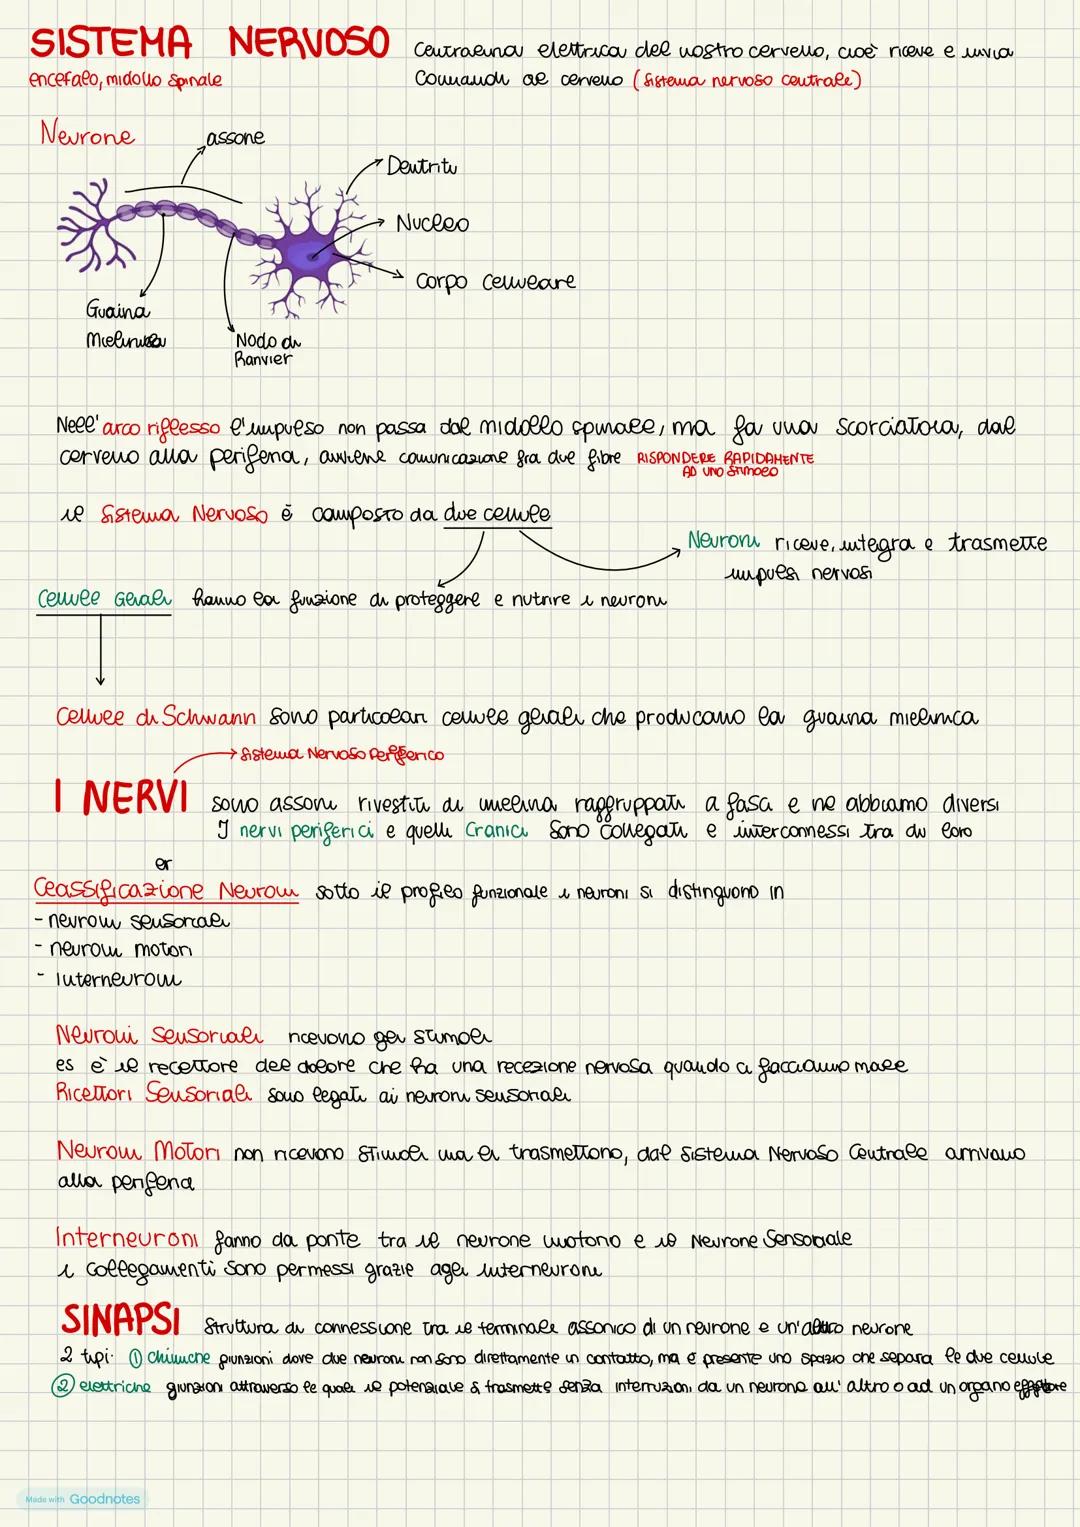 SISTEMA NERVOSO Centralina elettrica del nostro cervello, cioè riceve e invia
encefalo, midollo spinale Comandi al cervello (Sistema nervoso centrale)
Neurone
assone
Dentriti
Nucleo
Corpo cellulare
Guaina
Mielinica
Nodo di
Ranvier
Nell'arco riflesso l'impulso non passa dal midollo spinale, ma fa una scorciatoia, dal
cervello alla periferia, avviene comunicazione fra due fibre RISPONDERE RAPIDAMENTE
AD UNO STIMOLO
il Sistema Nervoso è composto da due cellule
Neuroni riceve, integra e trasmette
impulsi nervosi
Cellule Gliali hanno la funzione di proteggere e nutrire i neuroni
Cellule di Schwann sono particolari cellule gliali che producano la guaina mielinica
Sistema Nervoso Periferico
I NERVI sono assoni rivestiti di mielina raggruppati a fasci e ne abbiamo diversi
I nervi periferici e quelli Cranici Sono collegati e interconnessi tra di loro
er
Classificazione Neuroni sotto il profilo funzionale i neuroni si distinguono in
- neuroni sensoriali
- neuroni motori
- Interneuroni
Neuroni Sensoriali ricevono gli stimoli
es è il recettore del dolore che ha una recezione nervosa quando ci facciamo male
Ricettori Sensoriali sono legati ai neuroni sensoriali
Neuroni Motori non ricevono stimoli ma li trasmettono, dal Sistema Nervoso Centrale arrivano
alla periferia
Interneuroni fanno da ponte tra il neurone motorio e il Neurone Sensoriale
i collegamenti sono permessi grazie agli interneuroni
SINAPSI Struttura di connessione tra il terminale assonico di un neurone e un'altro neurone
2 tipi: ① chimiche giunzioni dove due neuroni non sono direttamente in contatto, ma è presente uno spazio che separa le due cellule
② elettriche giunzioni attraverso le quali il potenziale si trasmette senza interruzioni da un neurone all'altro o ad un organo effettore
Made with Goodnotes